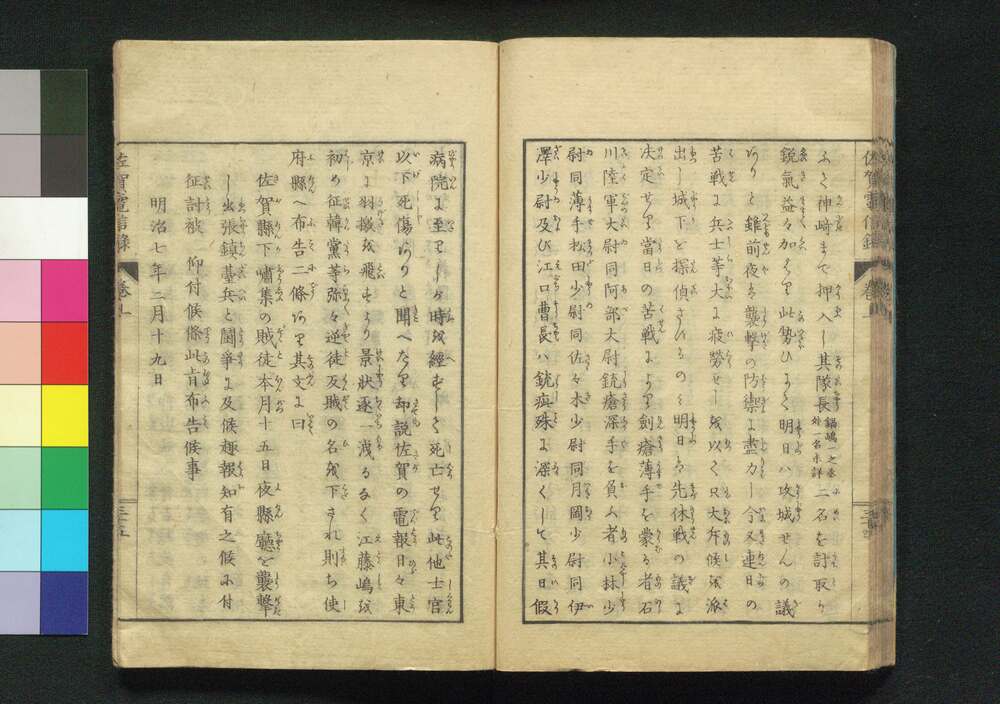 ふて神崎まで押入し其隊長鍋嶋一之丞外一名未詳二名を討取り
鋭氣益々加はり此勢ひにて明日ハ攻城せんの議
ありと雖前夜は襲撃の防禦に盡力し今又連日の
苦戦に兵士等大に疲勞せしを以て只大斥候を派
出し城下を探偵さするのミ明日は先休戦の議に
决定せり當日の苦戦により劍瘡薄手を蒙る者石
川陸軍大尉同阿部大尉銃瘡深手を負ふ者小林少
尉同薄手松田少尉同佐々木少尉同月岡少尉同伊
澤少尉及び江口曹長ハ銃痍殊に深くして其日假
病院に至りしが時を經ずして死亡せり此他士官
以下死傷ありと聞へたり却説佐賀の電報日々東
京に羽檄を飛すより景状逐一洩るゝなく江藤嶋を
初め征韓黨等弥々逆徒及賊の名を下され則ち使
府縣へ布告二條あり其文に曰
佐賀縣下嘯集の賊徒本月十五日夜縣廳を襲撃
し出張鎮臺兵と闘爭に及候趣報知有之候に付
征討被 仰付候條此旨布告候事
明治七年二月十九日
佐賀電信録 巻上
三十五